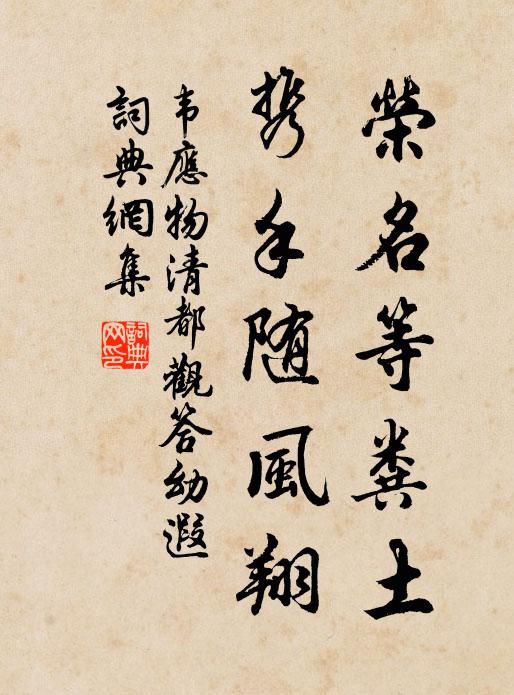 榮名等粪土
携手随風翔
韦應物清都觀答幼遐
詞典網集
詞典網印